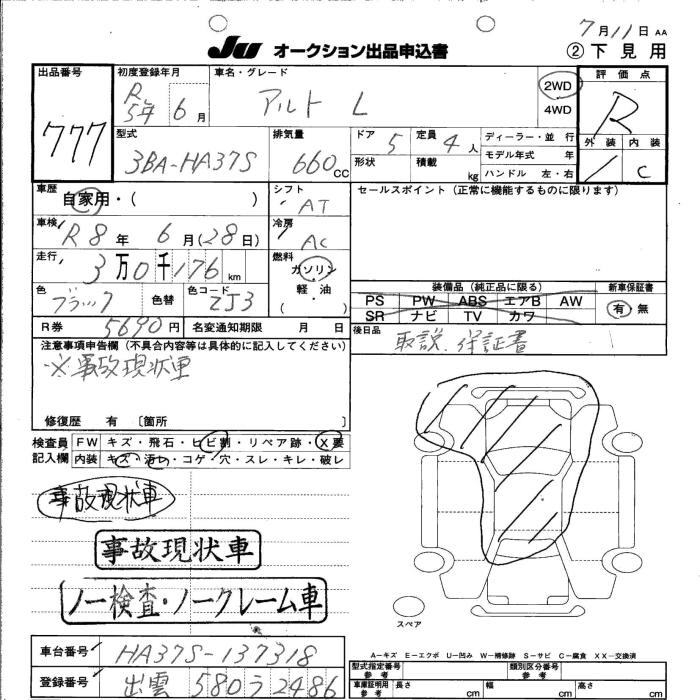 7月11日 AA
JU オークション出品申込書 ②下見用
出品番号 初度登録年月 車名・グレード 評価点
777 R5年6月 アルト L 2WD 4WD R
型式 排気量 ドア 5 定員 4人 ディーラー・並 行 外装 内装
3BA-HA37S 660CC 形状 積載 kg モデル年式 年 ハンドル 左・右 1 C
車歴 シフト セールスポイント(正常に機能するものに限ります)
自家用・( ) AT
車検 冷房
R8年 6月(28日) AC
走行 燃料
3万0千176km ガソリン
軽・油
( )
色 色替 色コード 装備品(純正品に限る) 新車保証書
ブラック ZJ3 PS PW ABS エアB AW 有 無
SR ナビ TV カワ
R券 5690円 名変通知期限 月 日 後日品
取説、保証書
注意事項申告欄(不具合内容等は具体的に記入してください)
※事故現状車
修復歴 有〔箇所 〕
検査員 FW キズ・飛石・ヒビ割・リペア跡・X要
記入欄 内装 キズ・汚レ・コゲ・穴・スレ・キレ・破レ
事故現状車
事故現状車
ノー検査・ノークレーム車
スペア
A-キズ E-エクボ U-凹み W-補修跡 S-サビ C-腐食 XX-交換済
車台番号 HA37S-137318 型式指定番号 参考 類別区分番号 参考
登録番号 出雲 580 う 2486 車庫証明用 参考 長さ cm 幅 cm 高さ cm